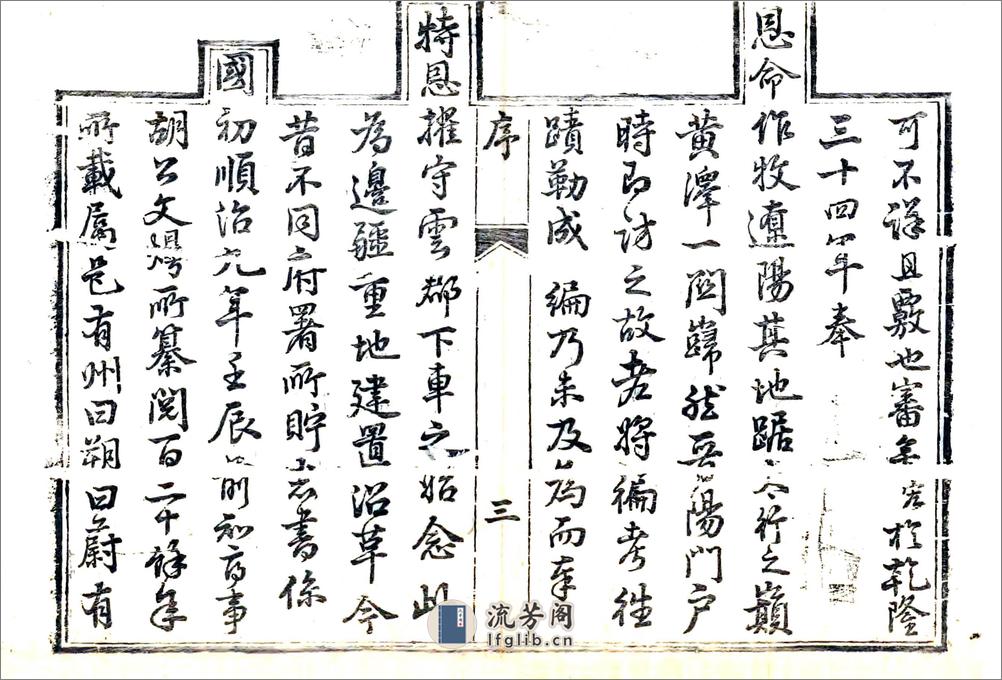 可不詳且覈也審矣 於乾隆
三十四年奉
恩命作牧遼陽其地踞太行之巔
黃澤一關巋然晉陽門戶
時即訪之故老將編考往
蹟勒成 編乃未及爲而奉
序 三
特恩擢守雲郡下車之始念此
爲邊疆重地建置沿革今
昔不同府署所貯志書係
國初順治九年壬辰 前知府事
胡公文燁所纂閱百二十餘年
所載屬邑有州曰朔曰蔚有
流芳阁
lfglib.cn